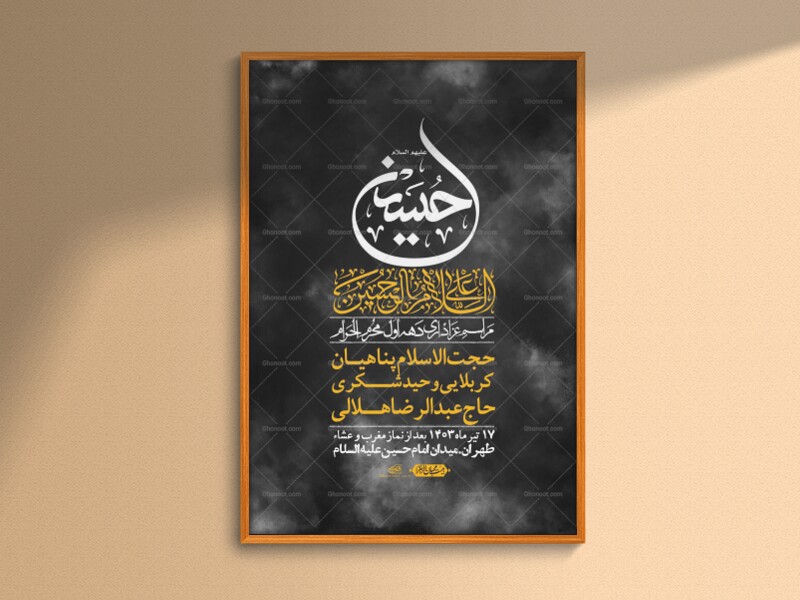 علیهم السلام
حسین
السلام علی الحسین
مراسم عزاداری دهه اول محرم الحرام
حجت الاسلام پناهیان
کربلایی وحید شکری
حاج عبدالرضا هلالی
۱۷ تیر ماه ۱۴۰۳ بعد از نماز مغرب و عشاء
طهران. میدان امام حسین علیه السلام
Ghonoot.com